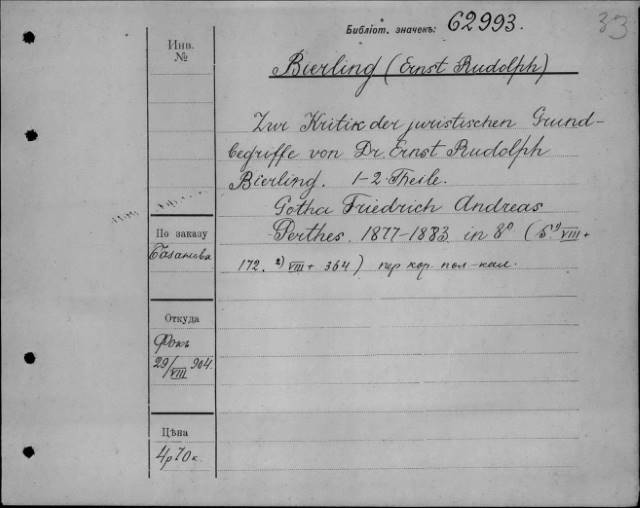 Библіот. значекъ: 62993.
33
Инв.
№
Bierling (Ernst Rudolph)
Zur Kritik der juristischen Grund-
begriffe von Dr. Ernst Rudolph
Bierling. 1-2 Theile.
Gotha Friedrich Andreas
Perthes. 1877-1883 in 8° (VIII +
172. 2) VIII + 364) пер кор пол-кал.
По заказу
Базанова
Откуда
Фокъ
29/VIII 904.
Цѣна
4р70к.